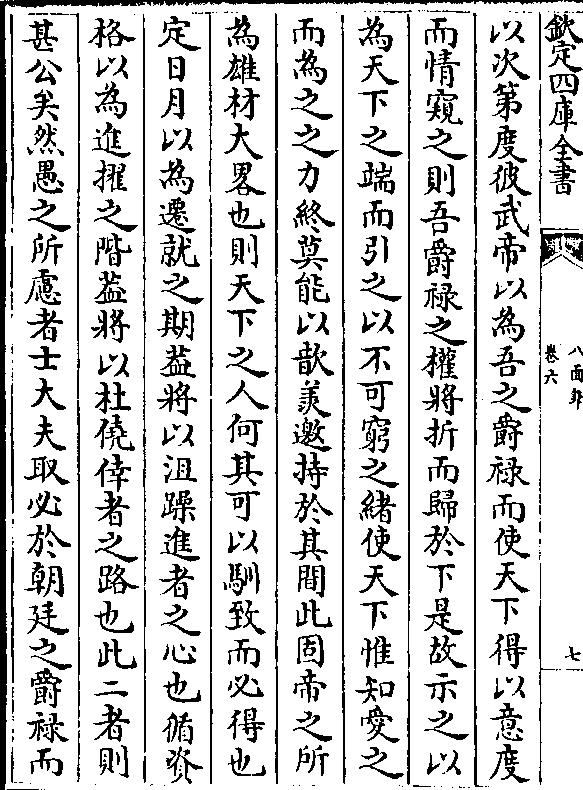 欽定四庫全書
八面鋒
卷六
七
以次第度彼武帝以為吾之爵祿而使天下得以意度
而情窺之則吾爵祿之權將折而歸於下是故示之以
為天下之端而引之以不可窮之緒使天下惟知愛之
而為之之力終莫能以歆羨邀持於其間此固帝之所
為雄材大畧也則天下之人何其可以馴致而必得也
定日月以為遷就之期葢將以沮躁進者之心也循資
格以為進擢之階葢將以杜僥倖者之路也此二者則
甚公矣然愚之所慮者士大夫取必於朝廷之爵祿而